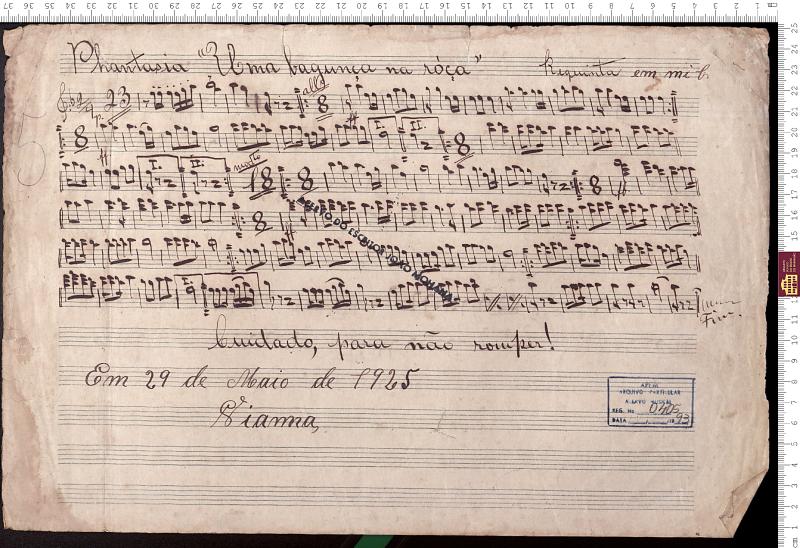 Phantasia "Uma bagunça na róça" Requinta em mi b.
23
allº
8
8
I.
II.
8
I.
II.
moº
18
8
8
8
ACERVO DO ESCRITOR JOÃO MOHANA
I.
Fim.
Cuidado, para não romper!
Em 29 de Maio de 1925
Vianna,
APEM
ARQUIVO PARTICULAR
ACERVO MUSICAL
REG. No 0405/93
DATA